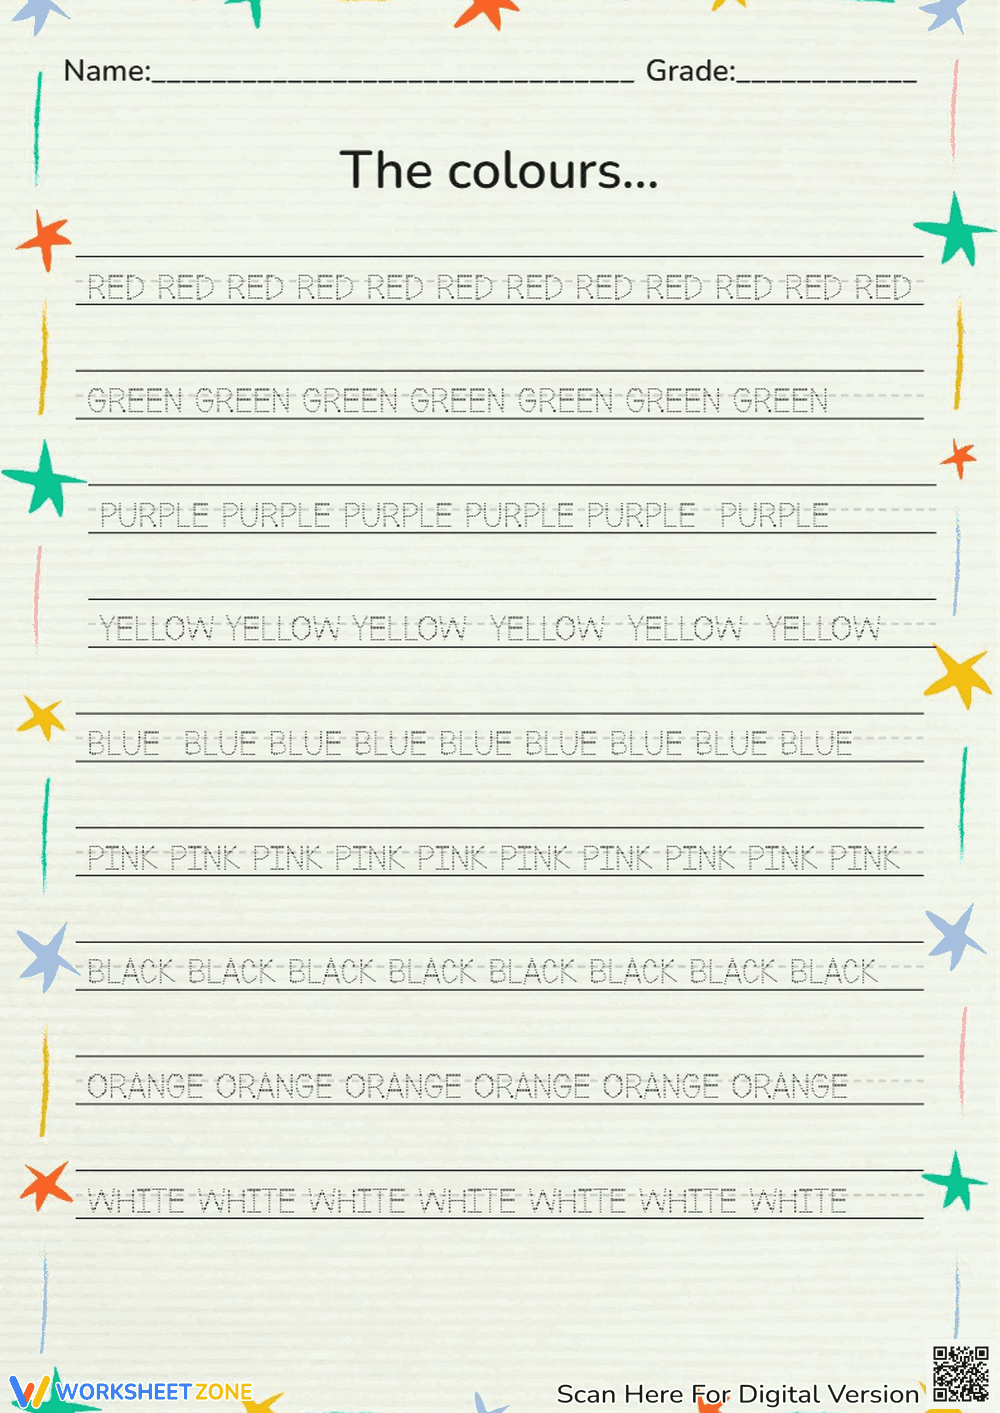 Name:________________________________ Grade:____________
The colours...
RED RED RED RED RED RED RED RED RED RED RED RED
GREEN GREEN GREEN GREEN GREEN GREEN GREEN
PURPLE PURPLE PURPLE PURPLE PURPLE PURPLE
YELLOW YELLOW YELLOW YELLOW YELLOW YELLOW
BLUE BLUE BLUE BLUE BLUE BLUE BLUE BLUE BLUE
PINK PINK PINK PINK PINK PINK PINK PINK PINK PINK
BLACK BLACK BLACK BLACK BLACK BLACK BLACK BLACK
ORANGE ORANGE ORANGE ORANGE ORANGE ORANGE
WHITE WHITE WHITE WHITE WHITE WHITE WHITE
WORKSHEETZONE
Scan Here For Digital Version